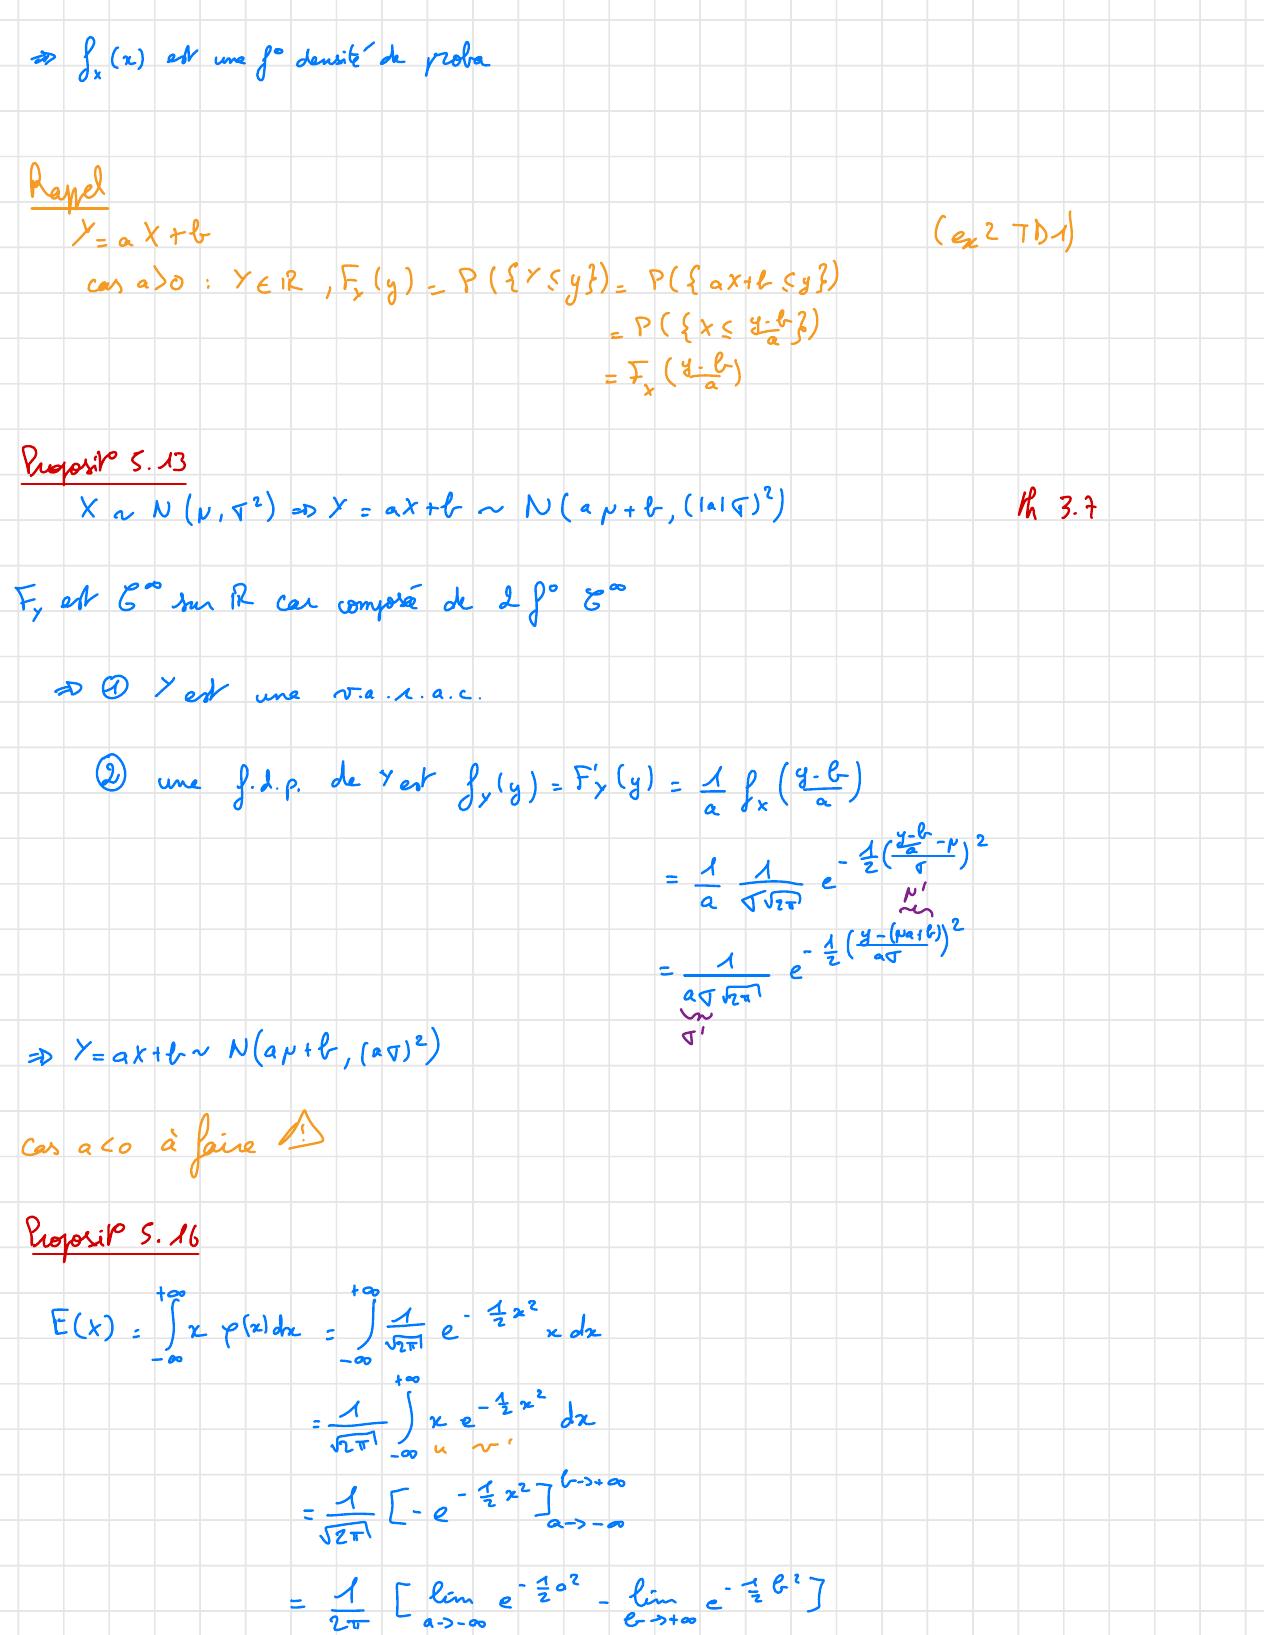 ⇒ f_x(x) est une f° densité de proba
Rappel
Y = aX + b (ex 2 TD1)
cas a>0 : Y ∈ ℝ, F_y(y) = P({Y ≤ y}) = P({aX+b ≤ y})
= P({X ≤ (y-b)/a})
= F_x((y-b)/a)
Proposit° 5.13
X ~ N(μ, σ²) ⇒ Y = aX+b ~ N(aμ+b, (|a|σ)²) th 3.7
F_y est C^∞ sur ℝ car composé de 2 f° C^∞
⇒ ① Y est une v.a.r.a.c.
② une f.d.p. de Y est f_y(y) = F'_y(y) = 1/a f_x((y-b)/a)
= 1/a 1/(σ√2π) e^{-1/2(((y-b)/a - μ)/σ)²}
μ'
= 1/(aσ√2π) e^{-1/2((y-(μa+b))/(aσ))²}
σ'
⇒ Y = aX+b ~ N(aμ+b, (aσ)²)
cas a<0 à faire ⚠
Proposit° 5.16
E(X) = ∫_{-∞}^{+∞} x φ(x)dx = ∫_{-∞}^{+∞} 1/√2π e^{-1/2 x²} x dx
= 1/√2π ∫_{-∞}^{+∞} x e^{-1/2 x²} dx
u v'
= 1/√2π [-e^{-1/2 x²}]_{a→-∞}^{b→+∞}
= 1/2π [lim_{a→-∞} e^{-1/2 a²} - lim_{b→+∞} e^{-1/2 b²}]